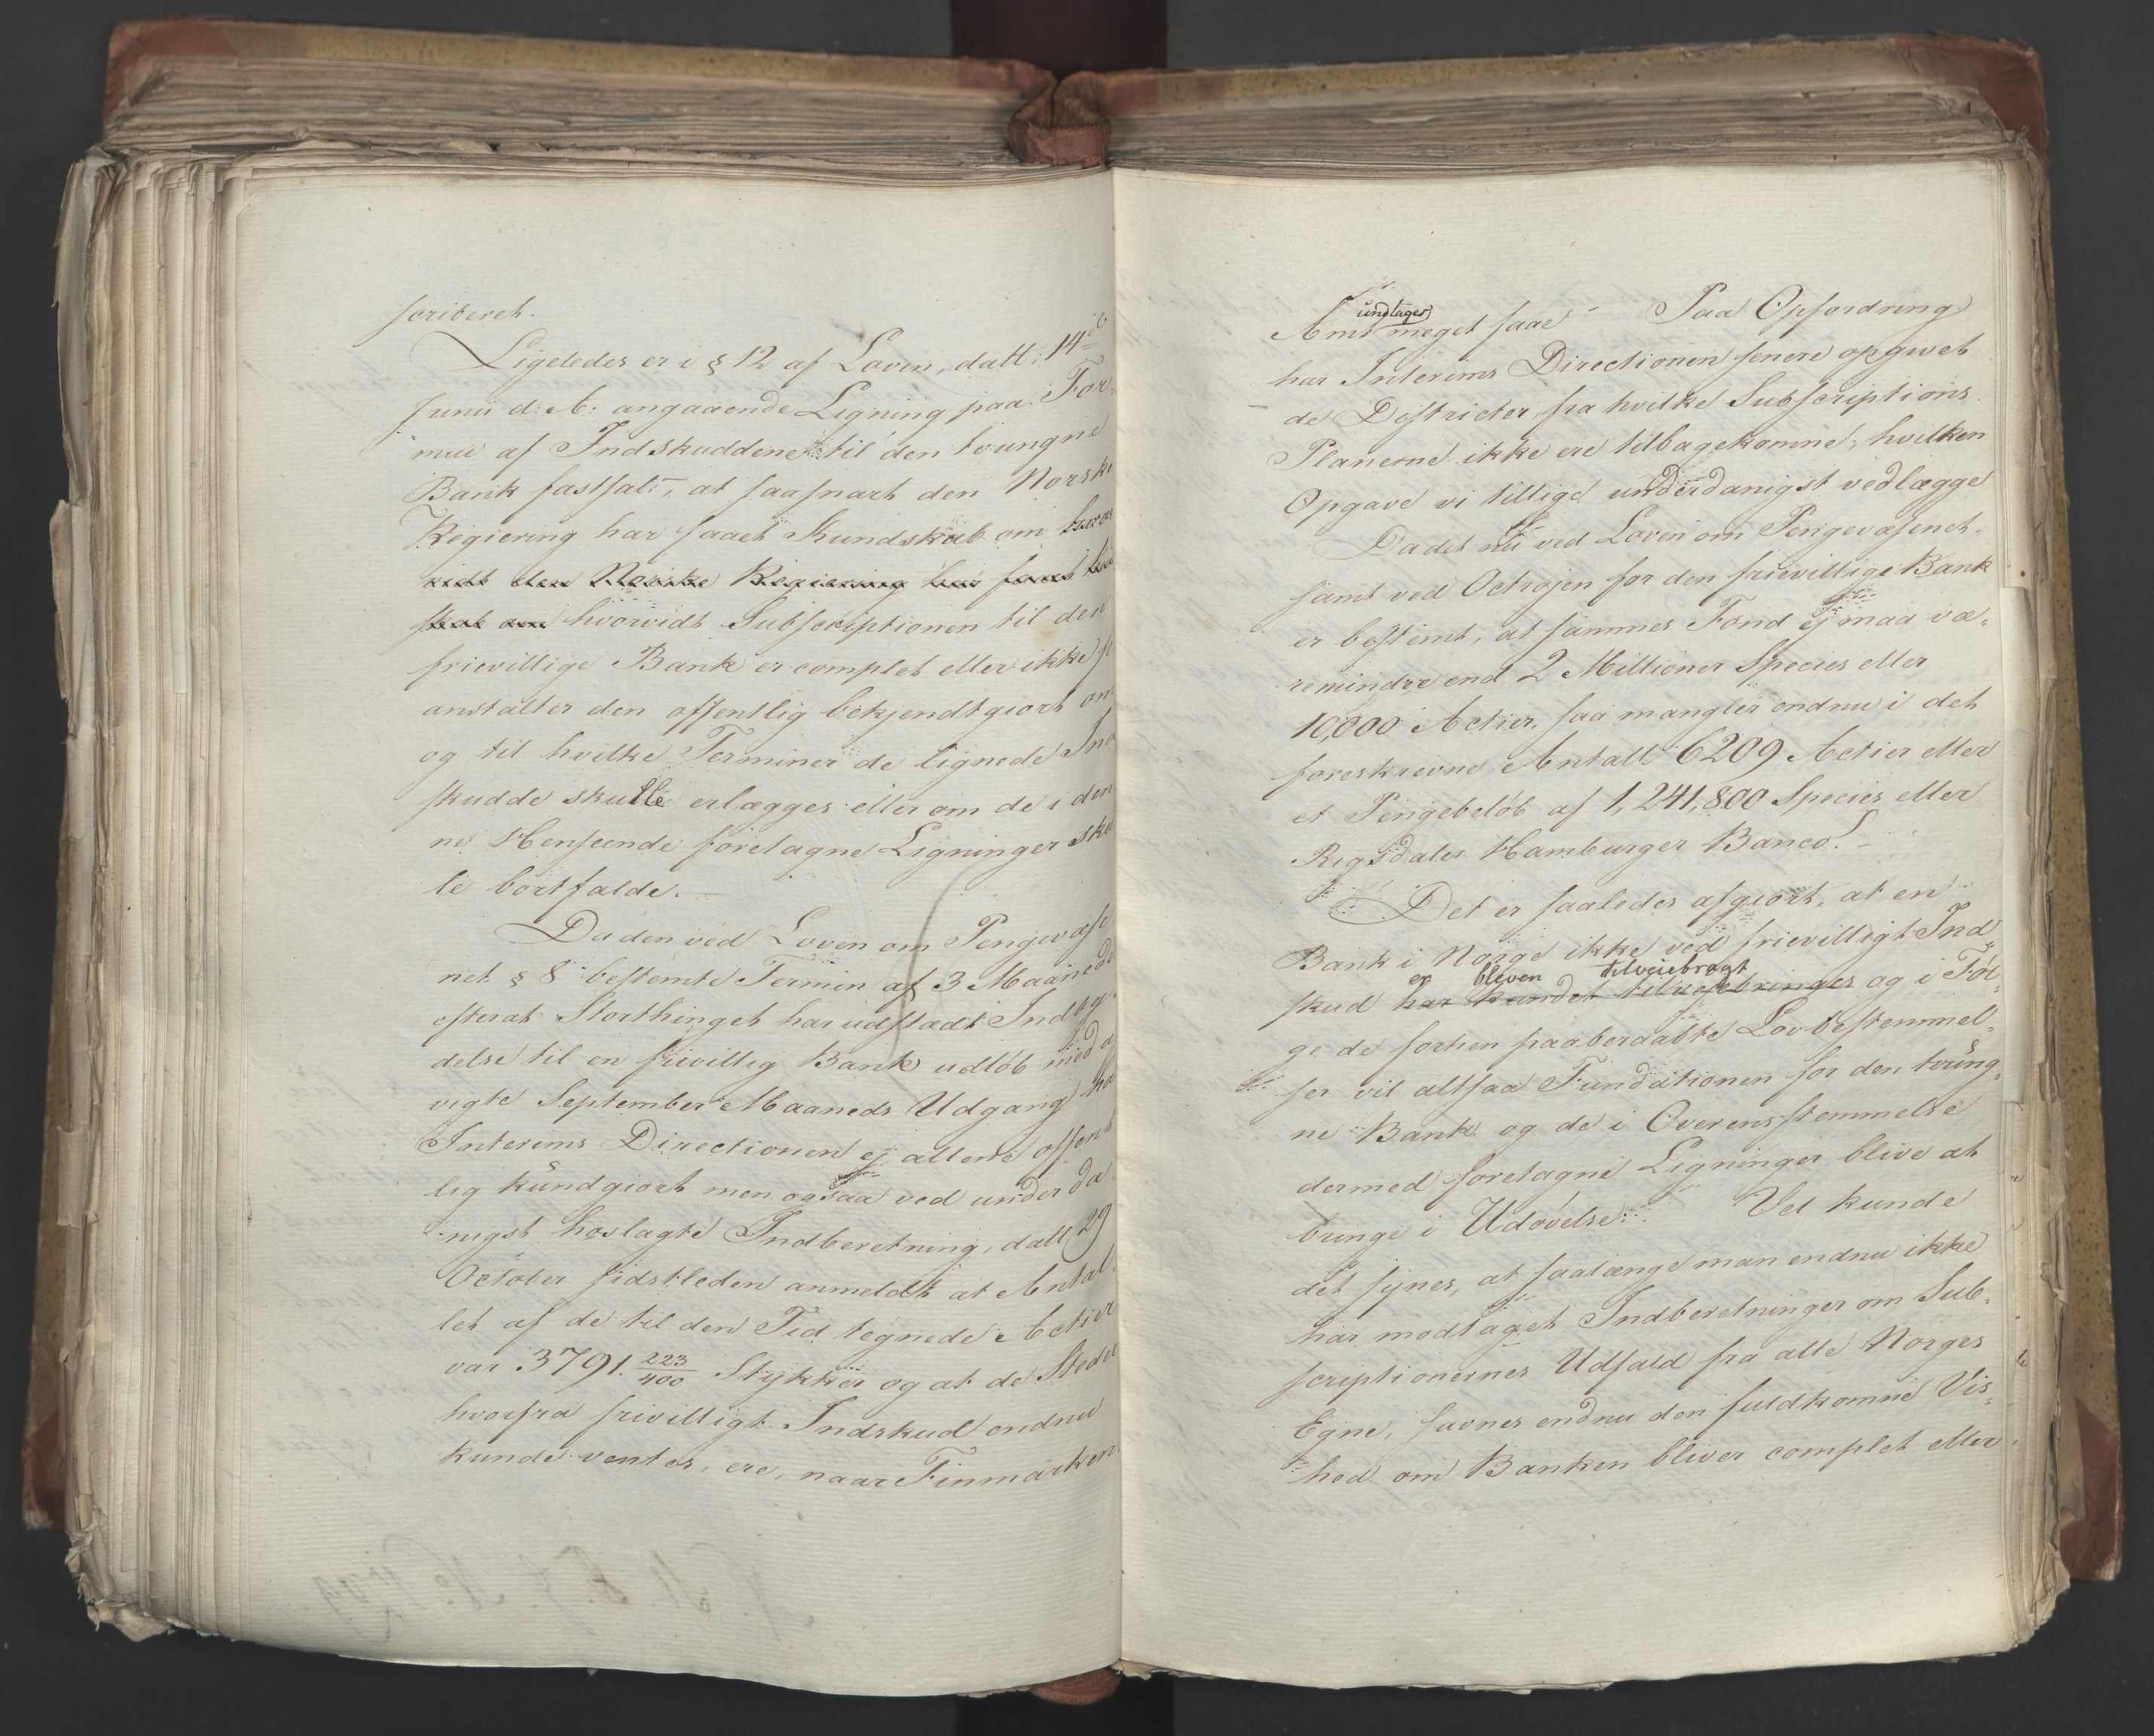 scriberet.
Ligeledes er i § 12 af Loven, datt: 14de
Junii d: A: angaaende Ligning paa For
mue af Indskuddene til den tvungne
Bank fastsat, at saasnart den Norske
Regiering har faaet Kundskab om
vidt den Norske Regiering har faaet
skab om hvorvidt Subscriptionen til den
frievillige Bank er complet eller ikke
anstalter den offentlig bekjendtgiort om
og til hvilke Terminer de lignede Ind
skudde skulle erlægges eller om de i den
ne Henseende foretagne Ligninger skul
le bortfalde. —
Da den ved Loven om Pengevæse
net § 8 bestemte Termin af 3 Maaneder
efterat Storthinget har udstædt Indby
delse til en frivillig Bank udløb med a
vigte September Maaneds Udgang har
Interims Directionen ej allene offent
lig kundgiort men ogsaa ved underda
nigst hoslagte Indberetning, datt 29
October sidstleden anmeldt at Antal
let af de til den Tid tegnede Actier
var 3791. 223/400 Stykker og at de Steder
hvorfra frivilligt Indskud endnu
kunde ventes, ere, naar Finmarken
Amt undtages meget faae — Paa Opfordring
har Interims Directionen senere opgivet
de Districter fra hvilke Subscriptions
Planerne ikke ere tilbagekomne, hvilken
Opgave vi tillige underdanigst vedlægge
Da det nu ved Loven om Pengevæsenet
samt ved Octrojen for den frievillige Bank
er bestemt, at sammes Fond ej maa væ-
re mindre end 2 Millioner Species eller
10,000 Actier, saa mangler endnu i det
foreskrevne Antall 6209 Actier eller
et Pengebeløb af 1,241,800 Species eller
Rigsdaler Hamburger Banco. —
Det er saaledes afgiort, at en
Bank i Norge ikke ved frievilligt Ind
er bleven tilveiebragt
skud har kundet tilvejebringes og i Føl-
ge de forhen paaberaabte Lovbestemmel-
ser vil altsaa Fundationen for den tvung-
ne Bank og de i Overensstemmelse
dermed foretagne Ligninger blive at
bringe i Udøvelse. Vel kunde
det synes, at saalænge man endnu ikke
har modtaget Indberetninger om Sub-
scriptionernes Udfald fra alle Norges
Egne, savnes endnu den fuldkomne Vis-
hed om Banken bliver complet eller